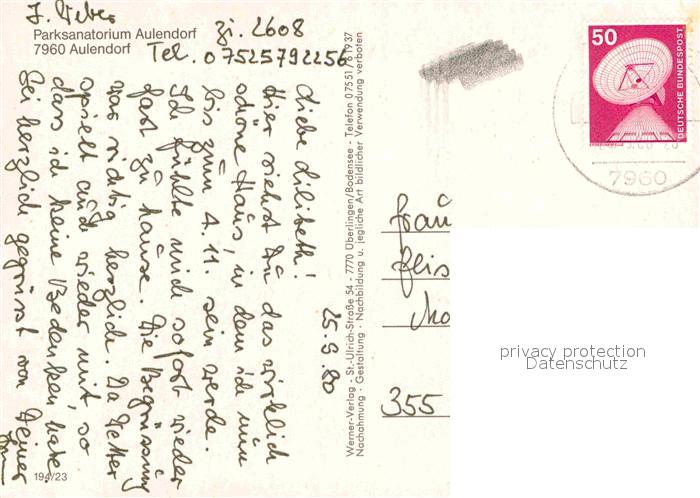 J. Weber
Parksanatorium Aulendorf
7960 Aulendorf
Zi. 2608
Tel. 07525792256
25.9.80
Liebe Lilibeth!
Hier siehst Du das wirklich
schöne Haus, in dem ich nun
bis zum 4.11. sein werde.
Ich fühlte mich sofort wieder
fast zu hause. Die Begrüssung
war richtig herzlich. Da Wetter
spielt auch wieder mit, so
dass ich keine Bedenken habe.
Sei herzlich gegrüsst von Deiner
194/23
Werner-Verlag - St.-Ulrich-Straße 54 - 7770 Überlingen/Bodensee - Telefon 07551/61937
Nachahmung · Gestaltung · Nachbildung u. jegliche Art bildlicher Verwendung verboten
50
DEUTSCHE BUNDESPOST
ERDEFUNKSTELLE
7960
Frau
355
privacy protection
Datenschutz